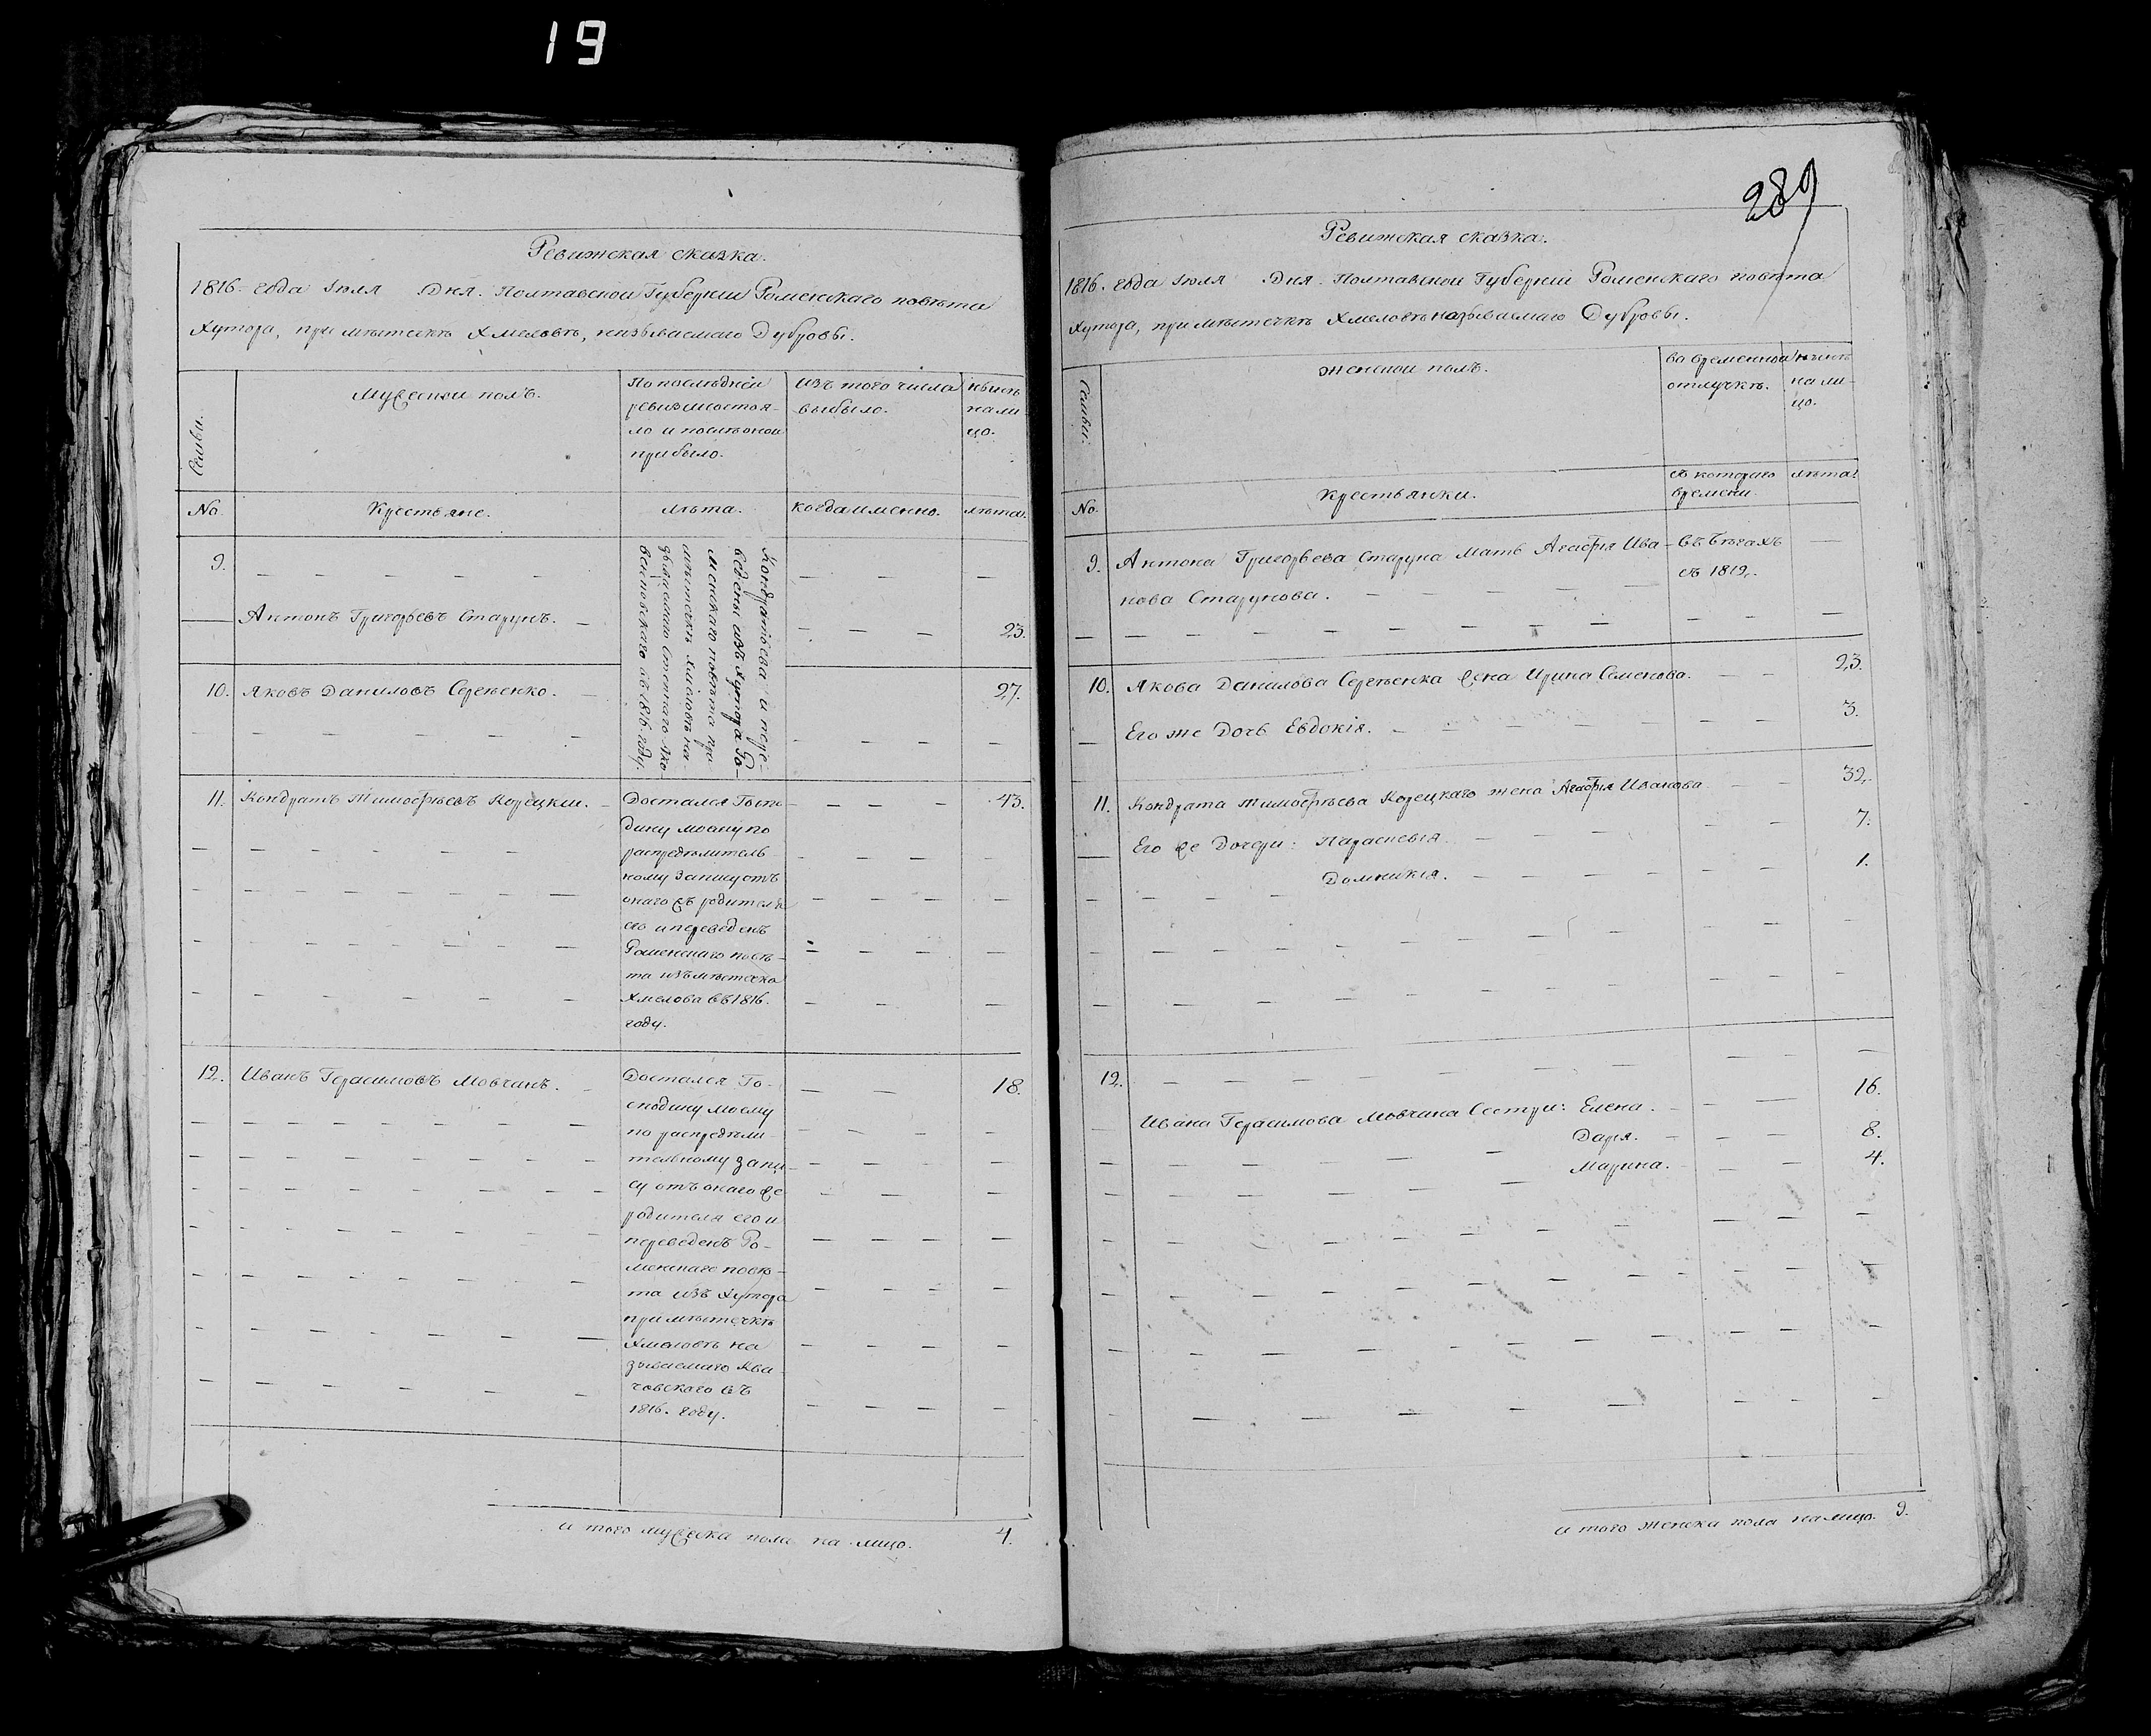 19
Ревижская сказка.
1816 года Іюля Дня. Полтавской Губерніи Роменскаго повѣта
Хутора, при мѣстечкѣ Хмеловѣ, називаемаго Дубровы.
Семьи.
Мужескои полъ.
По последнеи
ревизіи состоя-
ло и после онои
прибыло.
изъ того числа
выбыло.
нынѣ
нали
цо.
No.
Крестьяне.
лѣта.
когда имменно.
лѣта.
9.
Антонъ Григорьевъ Старунъ.
23.
10. Яковъ Даниловъ Сергѣенко.
27.
Кондратіева и пере-
ведены изъ Хутора Ро-
менскаго повѣта при
мѣстечкѣ Хмеловѣ на-
зываемаго
въ 1816. году.
11. Кондратъ Тимофѣевъ Корецкии.
Достался Госпо-
дину моему по
распредѣлитель-
ному запису отъ
онаго жъ родителя
его и переведенъ
Роменскаго повѣ-
та изъ мѣстечка
Хмелова въ 1816.
году.
43.
12. Иванъ Герасимовъ Мовчанъ.
Достался Го-
сподину моему
по распредѣли-
тельному запи-
су отъ онаго же
родителя его и
переведенъ Ро-
менскаго повѣ-
та изъ Хутора
при мѣстечкѣ
Хмеловѣ на
зываемаго Ква
човского въ
1816. году.
18.
и того мужеска пола на лицо. 4.
289
Ревижская сказка.
1816. года Іюля Дня. Полтавской Губерніи Роменскаго повѣта
Хутора, при мѣстечкѣ Хмеловѣ називаемаго Дубровы.
Семьи.
женскои полъ.
во временнои
отлучкѣ.
нынѣ
нали-
цо.
No.
Крестьянки.
съ котораго
времени.
лѣта.
9. Антона Григорьева Старуна Мать Агафія Ива-
нова Старунова.
въ бѣгахъ
съ 1812.
10. Якова Данилова Сергѣенка жена Ирина Семенова. 23.
Его же Дочь Евдокія. 3.
11. Кондрата Тимофѣева Корецкаго жена Агафія Иванова. 32.
Его же Дочери: Параскевія. 7.
Домникія. 1.
12.
Ивана Герасимова Мовчана Сестри: Елена. 16.
Дарія. 8.
Марина. 4.
и того женска пола на лицо. 9.